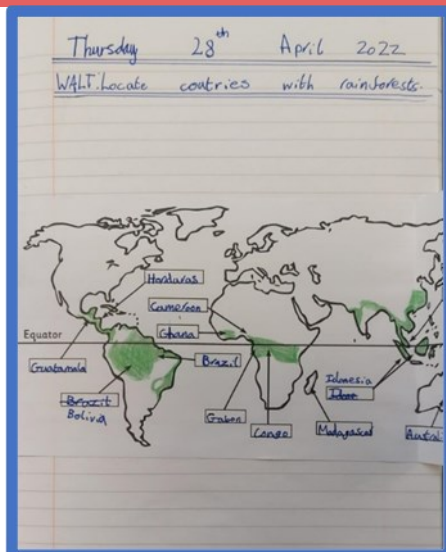 Thursday 28th April 2022
WALT: Locate coutries with rainforests.
Honduras
Cameroon
Ghana
Equator
Guatamala
Brazil
Brazil
Bolivia
Gaben
Congo
Madagascar
Idonesia
Australi